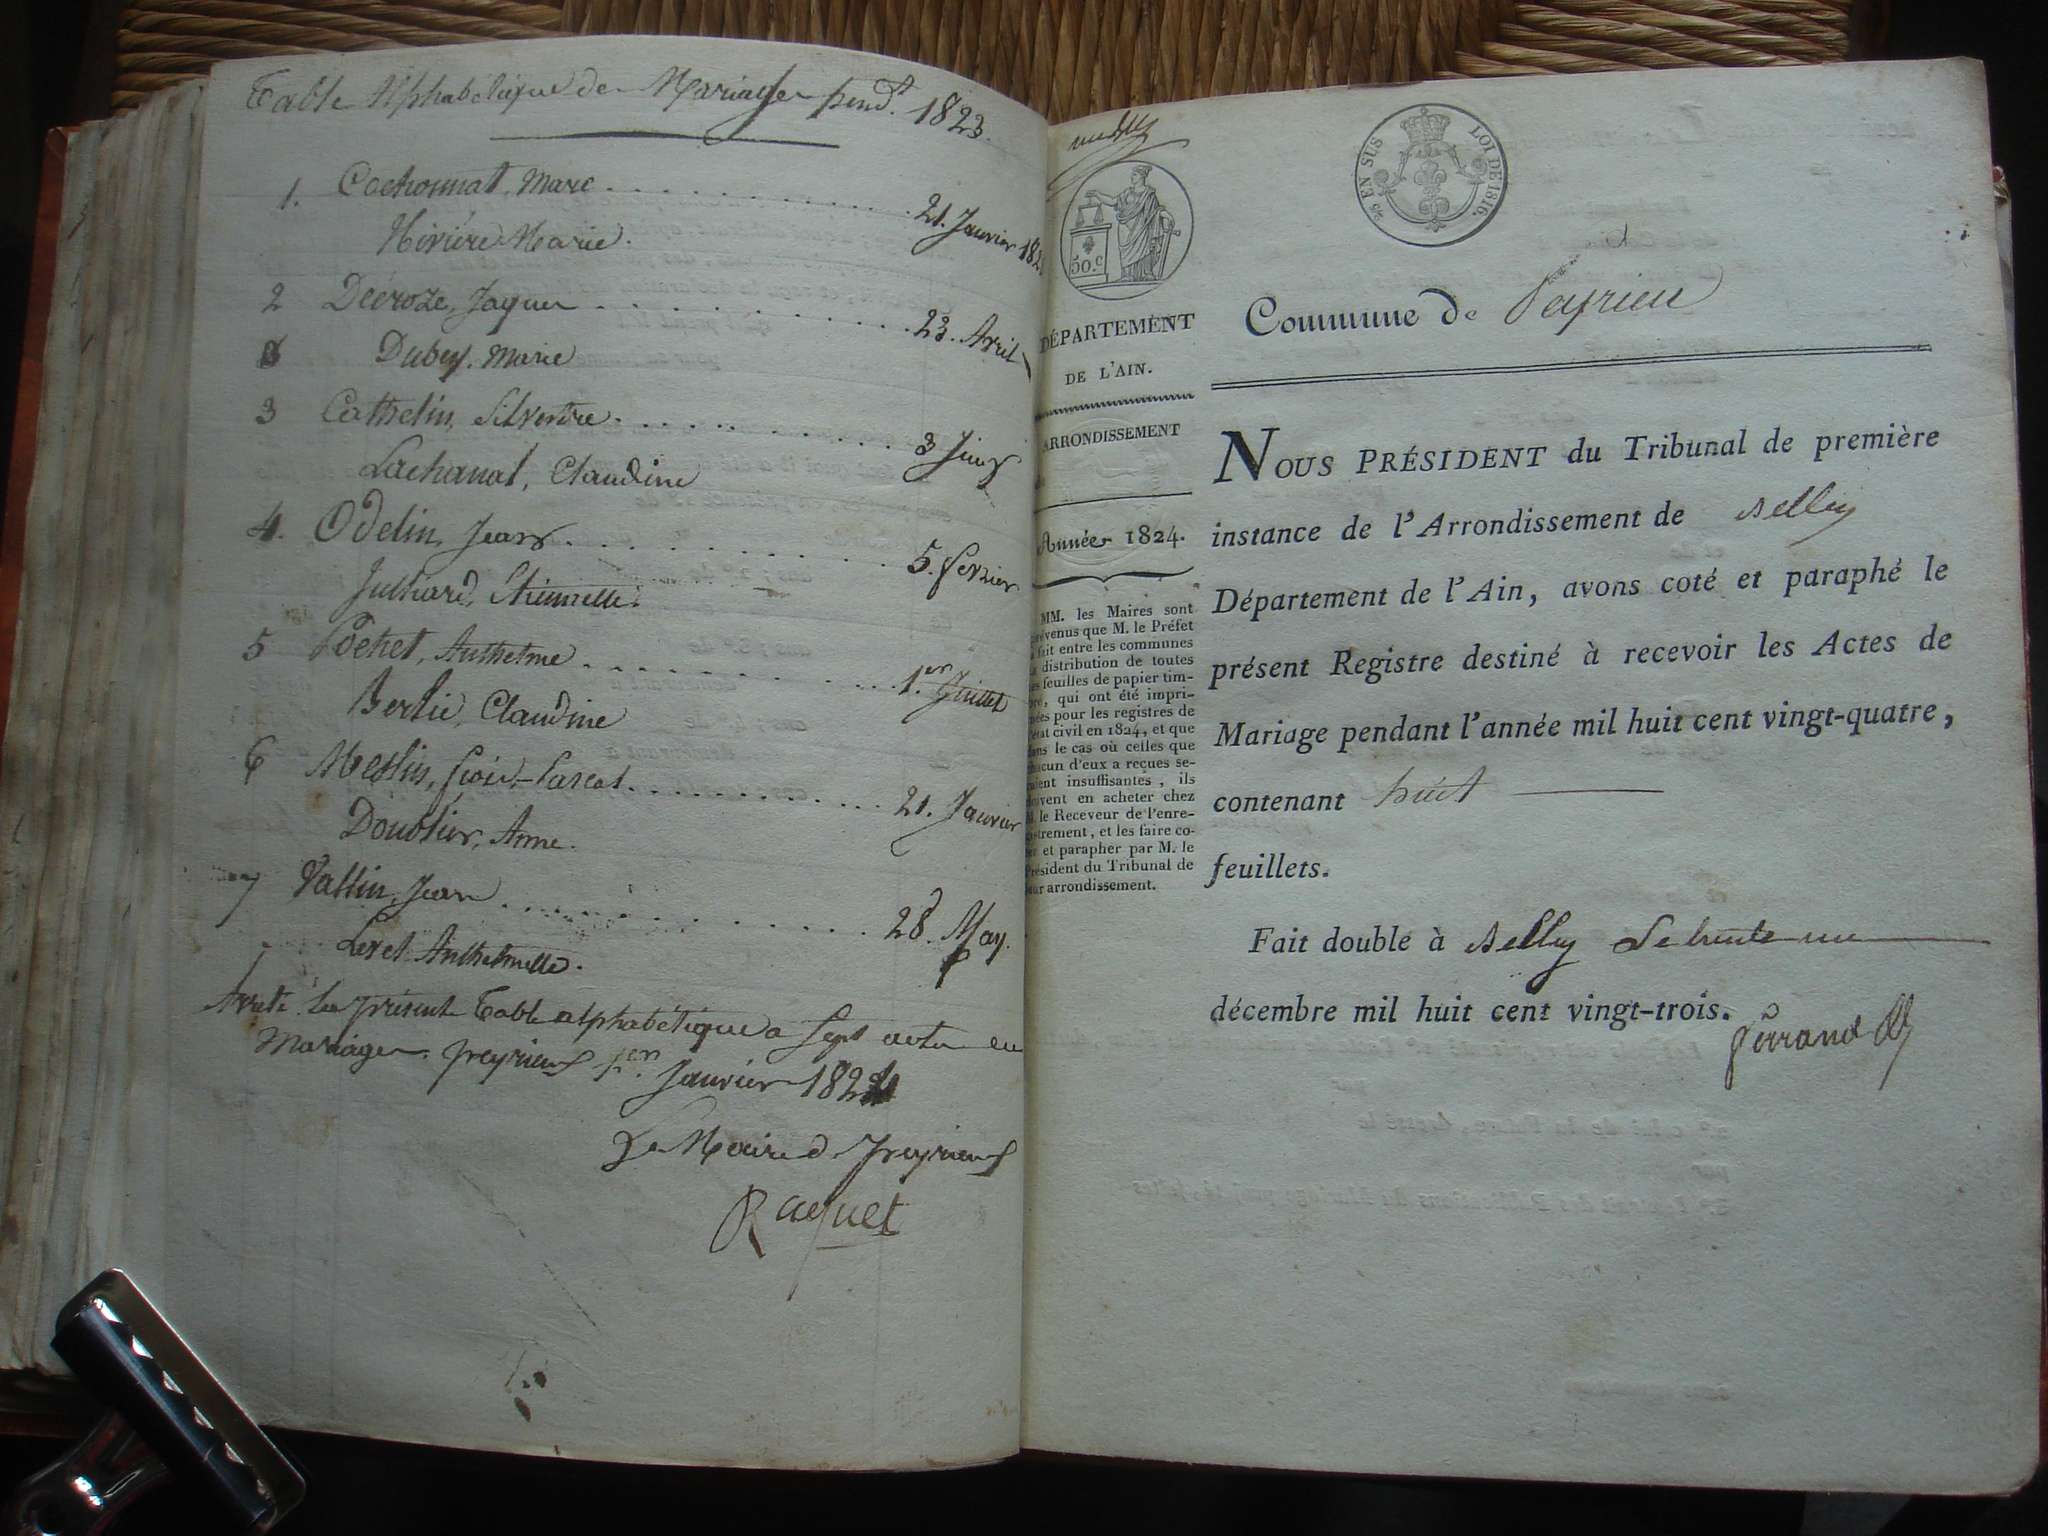 Table Alphabétique de Mariages pend.t 1823.
1. Cochonnat, Marc . . . . . . . . . . 21. Janvier 182
Rivière Marie.
2 Décroze, Jaques . . . . . . . . . . 23. Avril
Dubuy, Marie
3 Cathelin, Silvestre . . . . . . . . . . 3 Juin
Lachanat, Claudine
4. Odelin, Jean . . . . . . . . . . 5. fevrier
Julliard, Etiennette.
5 Pochet, Anthelme . . . . . . . . . . 1.er Juillet
Berlie, Claudine
6 Meslin, fçois-Pascal . . . . . . . . . . 21. Janvier
Doublier, Anne.
7 Vallin, Jean . . . . . . . . . . 28. May.
Leret Anthelmette.
Arrêté la présente Table alphabétique a Sept actes en
Mariages. peyrieux 1.er Janvier 1824
Le Maire de peyrieux
Raquet
5.e EN SUS LOI DE 1816.
50.c
DÉPARTEMENT
DE L'AIN.
ARRONDISSEMENT
Année 1824.
MM. les Maires sont
prévenus que M. le Préfet
a fait entre les communes
la distribution de toutes
les feuilles de papier tim-
bré, qui ont été impri-
mées pour les registres de
l'état civil en 1824, et que
dans le cas où celles que
chacun d'eux a reçues se-
raient insuffisantes, ils
doivent en acheter chez
M. le Receveur de l'enre-
gistrement, et les faire co-
ter et parapher par M. le
Président du Tribunal de
leur arrondissement.
Commune de Peyrieu
NOUS PRÉSIDENT du Tribunal de première
instance de l'Arrondissement de Belley
Département de l'Ain, avons coté et paraphé le
présent Registre destiné à recevoir les Actes de
Mariage pendant l'année mil huit cent vingt-quatre,
contenant huit
feuillets.
Fait double à Belley le trente un
décembre mil huit cent vingt-trois.